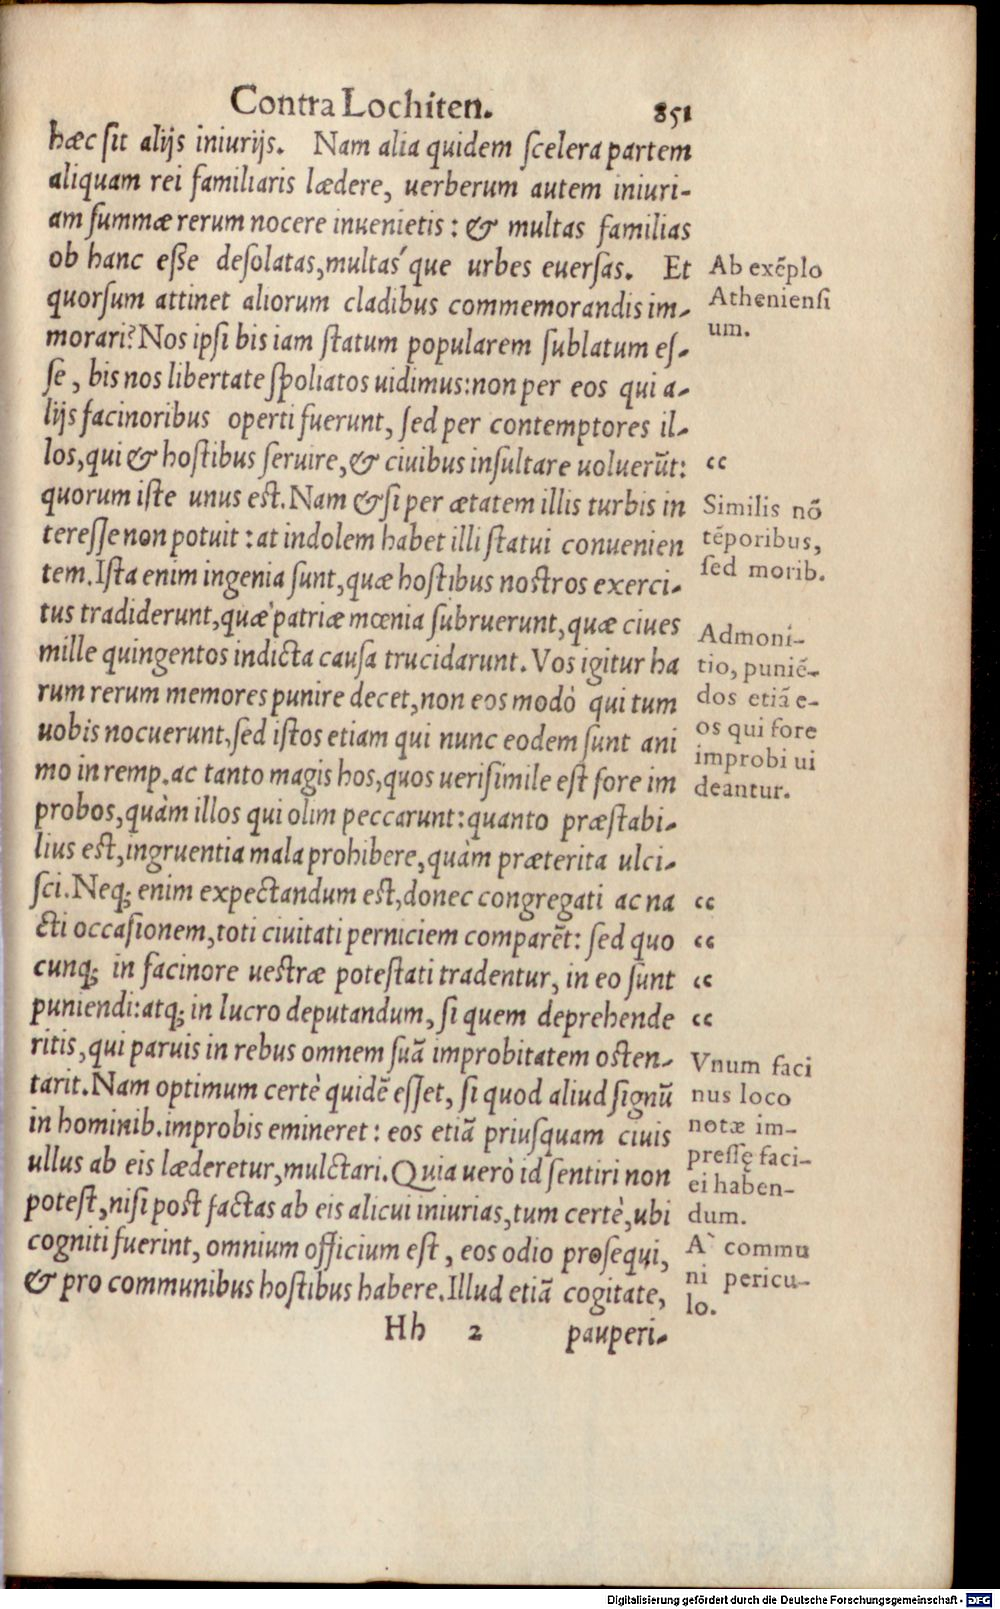 Contra Lochiten. 851
hæc sit alijs iniurijs. Nam alia quidem scelera partem
aliquam rei familiaris lædere, uerberum autem iniuri-
am summæ rerum nocere inuenietis: & multas familias
ob hanc esse desolatas, multas´que urbes euersas. Et
quorsum attinet aliorum cladibus commemorandis im-
morari? Nos ipsi bis iam statum popularem sublatum es-
se, bis nos libertate spoliatos uidimus: non per eos qui a-
lijs facinoribus operti fuerunt, sed per contemptores il-
los, qui & hostibus seruire, & ciuibus insultare uoluerūt:
quorum iste unus est. Nam & si per ætatem illis turbis in
teresse non potuit: at indolem habet illi statui conuenien
tem. Ista enim ingenia sunt, quæ hostibus nostros exerci-
tus tradiderunt, quæ patriæ mœnia subruerunt, quæ ciues
mille quingentos indicta causa trucidarunt. Vos igitur ha
rum rerum memores punire decet, non eos modò qui tum
uobis nocuerunt, sed istos etiam qui nunc eodem sunt ani
mo in remp. ac tanto magis hos, quos uerisimile est fore im
probos, quàm illos qui olim peccarunt: quanto præstabi-
lius est, ingruentia mala prohibere, quàm præterita ulci-
sci. Neq; enim expectandum est, donec congregati ac na
cti occasionem, toti ciuitati perniciem comparēt: sed quo
cunq; in facinore uestræ potestati tradentur, in eo sunt
puniendi: atq; in lucro deputandum, si quem deprehende
ritis, qui paruis in rebus omnem suā improbitatem osten-
tarit. Nam optimum certè quidē esset, si quod aliud signū
in hominib. improbis emineret: eos etiā priusquam ciuis
ullus ab eis læderetur, mulctari. Quia uerò id sentiri non
potest, nisi post factas ab eis alicui iniurias, tum certè, ubi
cogniti fuerint, omnium officium est, eos odio prosequi,
& pro communibus hostibus habere. Illud etiā cogitate,
Hh 2 pauperi-
Ab exēplo
Atheniensi
um.
“
Similis nō
tēporibus,
sed morib.
Admoni-
tio, puniē-
dos etiā e-
os qui fore
improbi ui
deantur.
“
“
“
“
Vnum faci
nus loco
notæ im-
pressę faci-
ei haben-
dum.
A` commu
ni pericu-
lo.
Digitalisierung gefördert durch die Deutsche Forschungsgemeinschaft - DFG